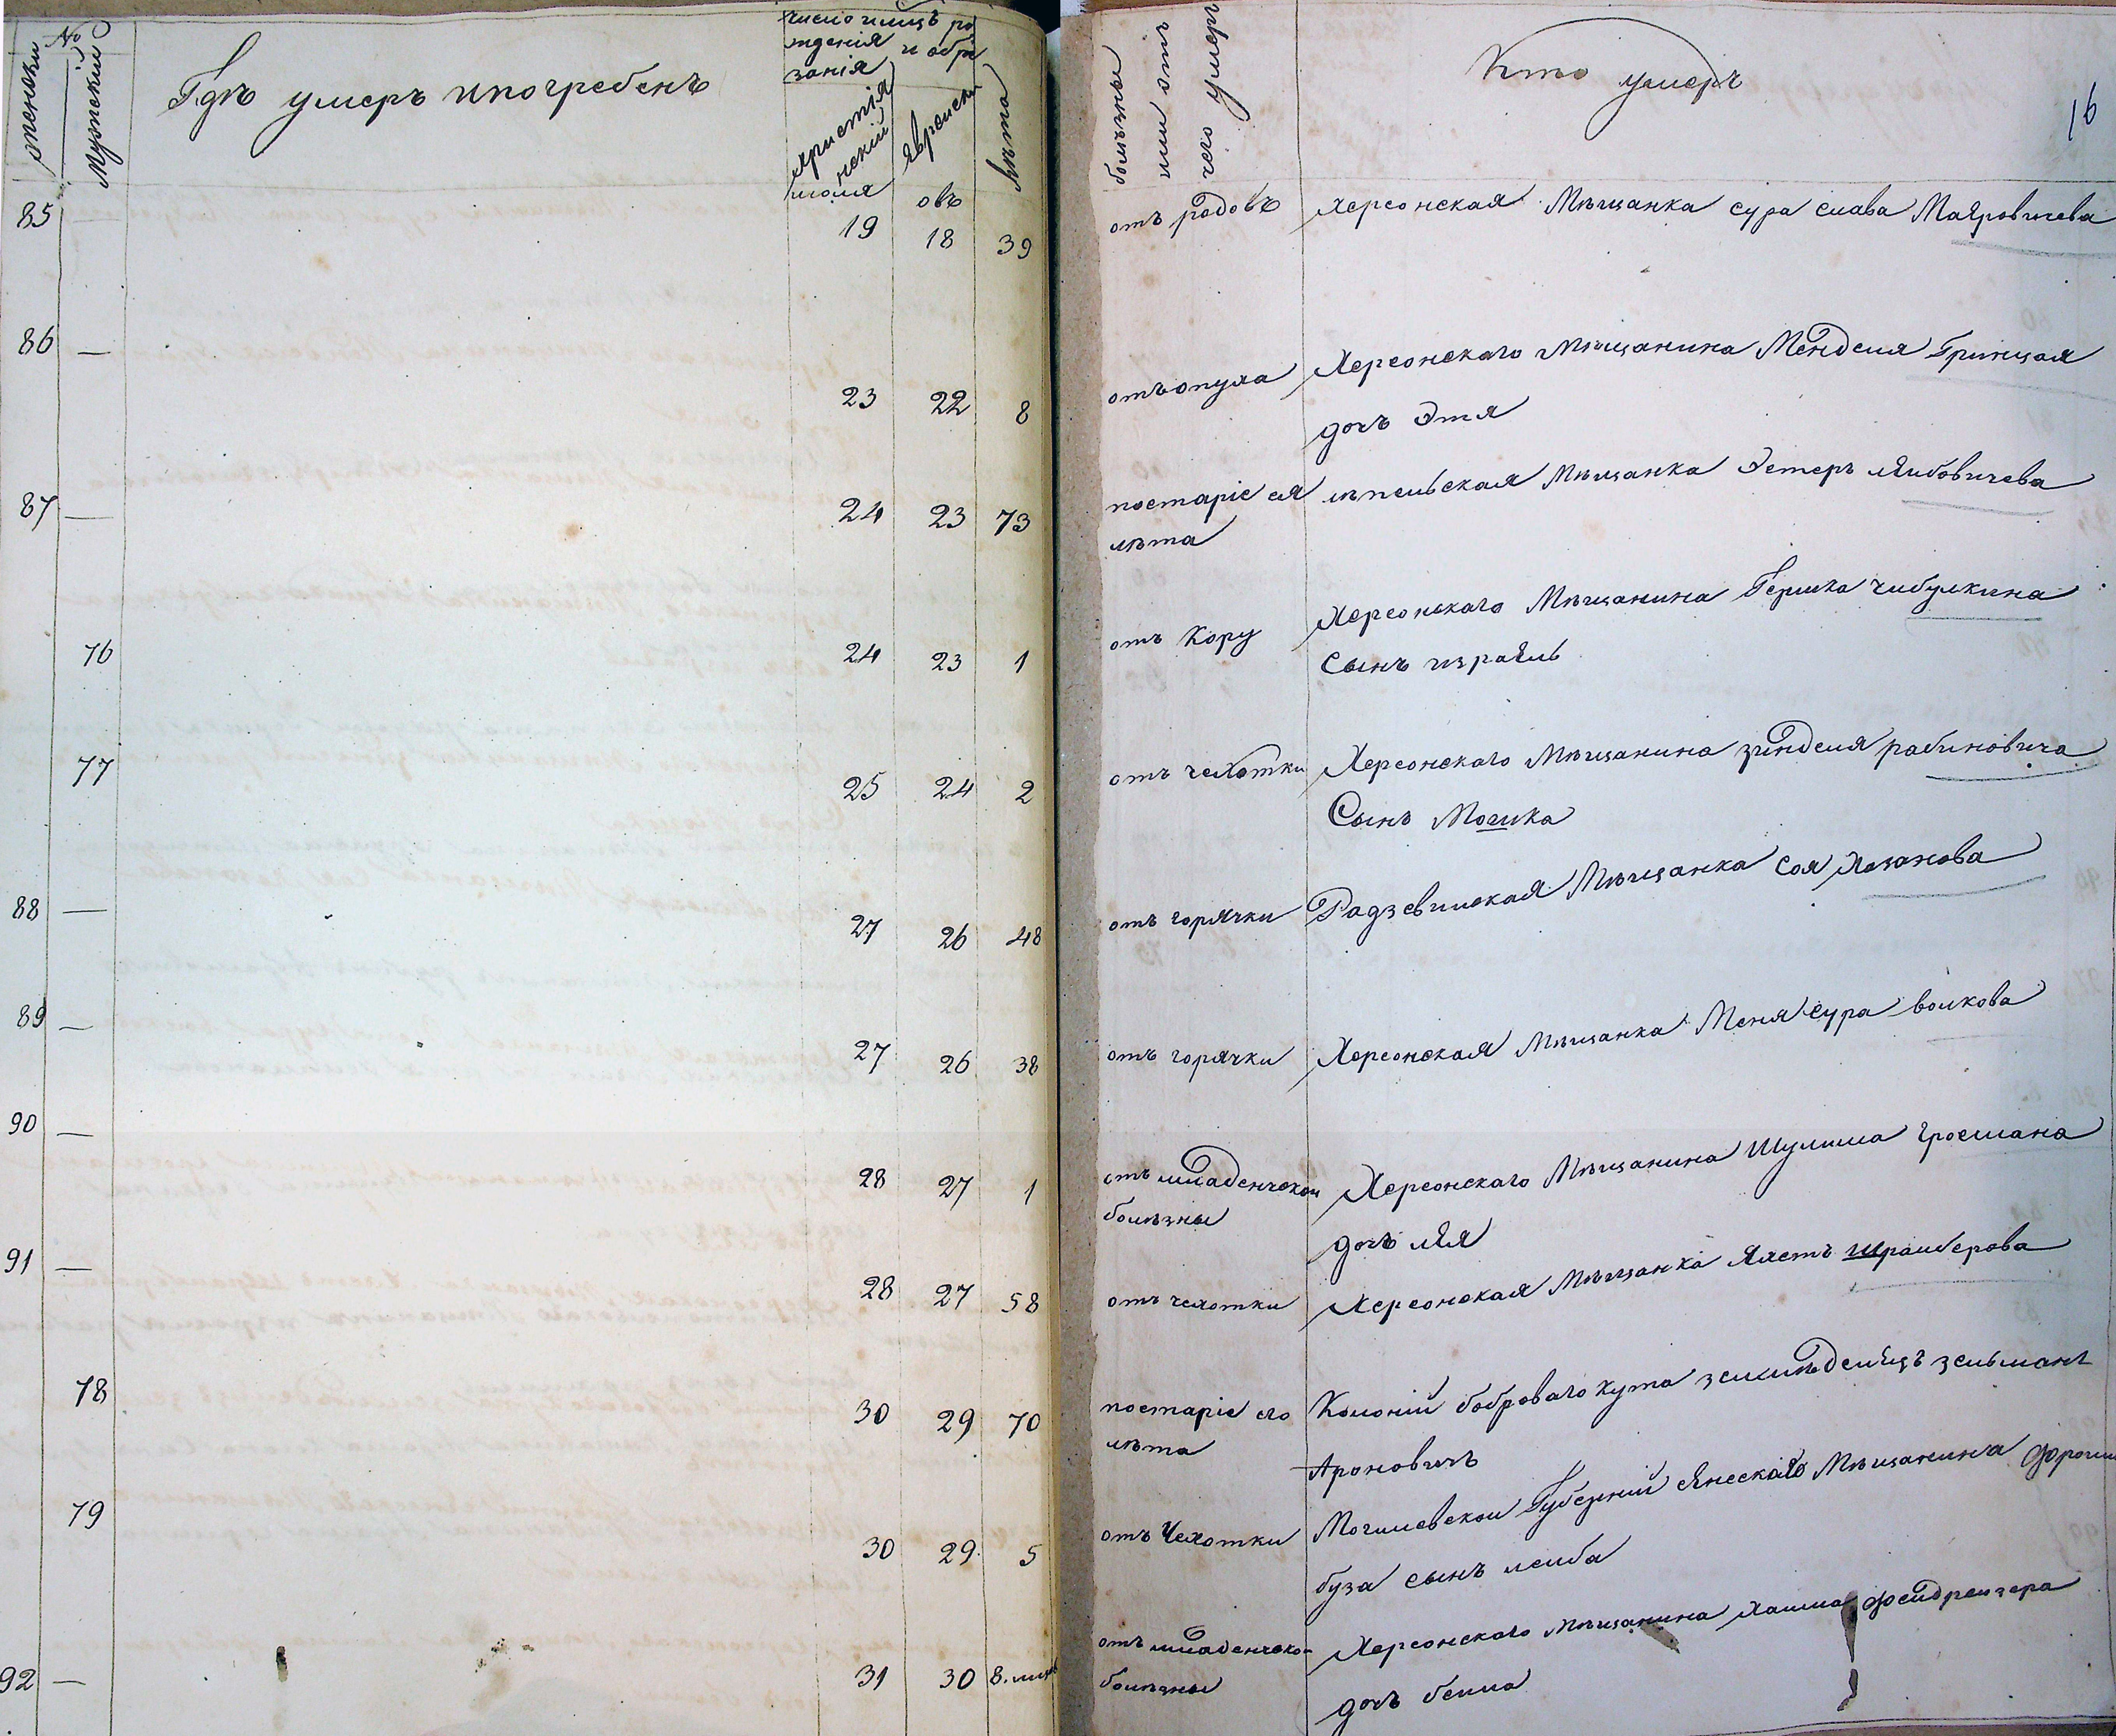 №
женски
Мужский
Гдѣ умеръ и погребенъ
число и мцъ ро
жденія и обре
занія
христія
нскій
Еврейски
лѣта
болѣзны
или отъ
чего умеръ
Кто умеръ
16
июля овъ
85 — 19 18 39 отъ родовъ Херсонская Мѣщанка сура слава Маяровичева
86 — 23 22 8 отъ опуха Херсонскаго Мѣщанина Менделя Гринцая
дочъ Этя
87 — 24 23 73 постаріе ея Мѣщанка Эстеръ Лейбовичева
лѣта
76 24 23 1 отъ Кору Херсонскаго Мѣщанина Гершка чибулкина
Сынъ израиль
77 25 24 2 отъ чехотки Херсонскаго Мѣщанина зинделя рабиновича
Сынъ Мошка
88 — 27 26 48 отъ горячки Радзевилская Мѣщанка Соя Хазанова
89 — 27 26 38 отъ горячки Херсонская Мѣщанка Меня Сура волкова
90 — 28 27 1 отъ младенческой Херсонскаго Мѣщанина Шулима гросмана
болѣзны дочъ лея
91 — 28 27 58 отъ чехотки Херсонская Мѣщанка
78 30 29 70 постаріе его Колоній боброваго кута земледелецъ зельманъ
лѣта Ароновичъ
79 30 29 5 отъ Чехотки Могилевской Губерній Мѣщанина
буза сынъ лейба
92 — 31 30 8. отъ младенческо- Херсонскаго мѣщанина хаима фейдрейзера
болѣзны дочъ бейла